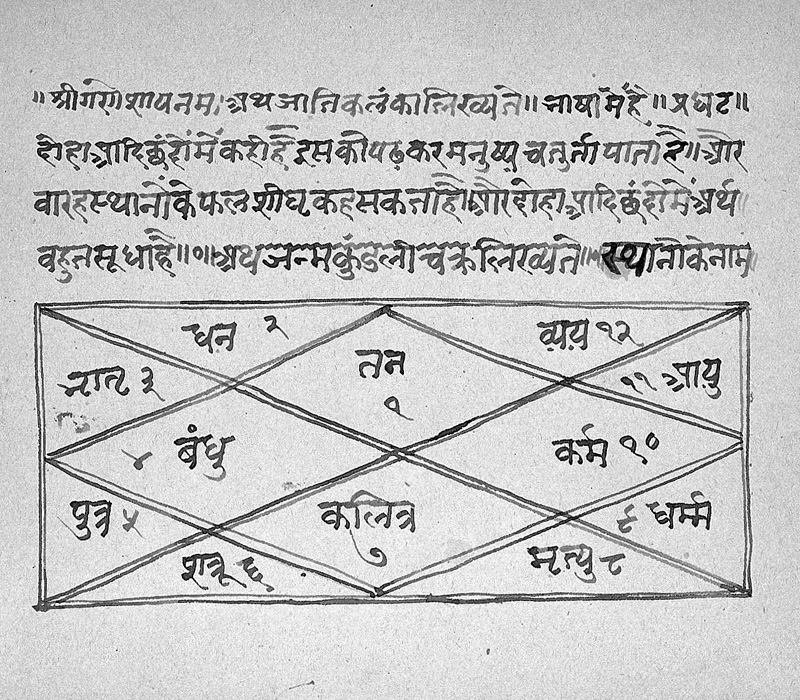 ॥श्रीगंणेशायनमः॥अथजातिकलंकालिख्यते॥भाषामेंहै॥अघट॥
दोहाआदिछंदोंमेंकहीहैइसकोपढ़करमनुष्यचतुर्तापाताहै॥और
वारहस्थानोंकेफलशीघ्रकहसकताहै॥औरदोहाआदिछंदोमेंअर्थ
वहुतसूधाहै॥०॥अथजन्मकुंडलीचक्रलिख्यते॥स्थानोकेनाम
धन २
तन १
व्यय १२
भ्रातृ ३
११ आयु
४ बंधु
कर्म १०
पुत्र ५
कलित्र ७
९ धर्म्म
शत्रू ६
मृत्यु ८